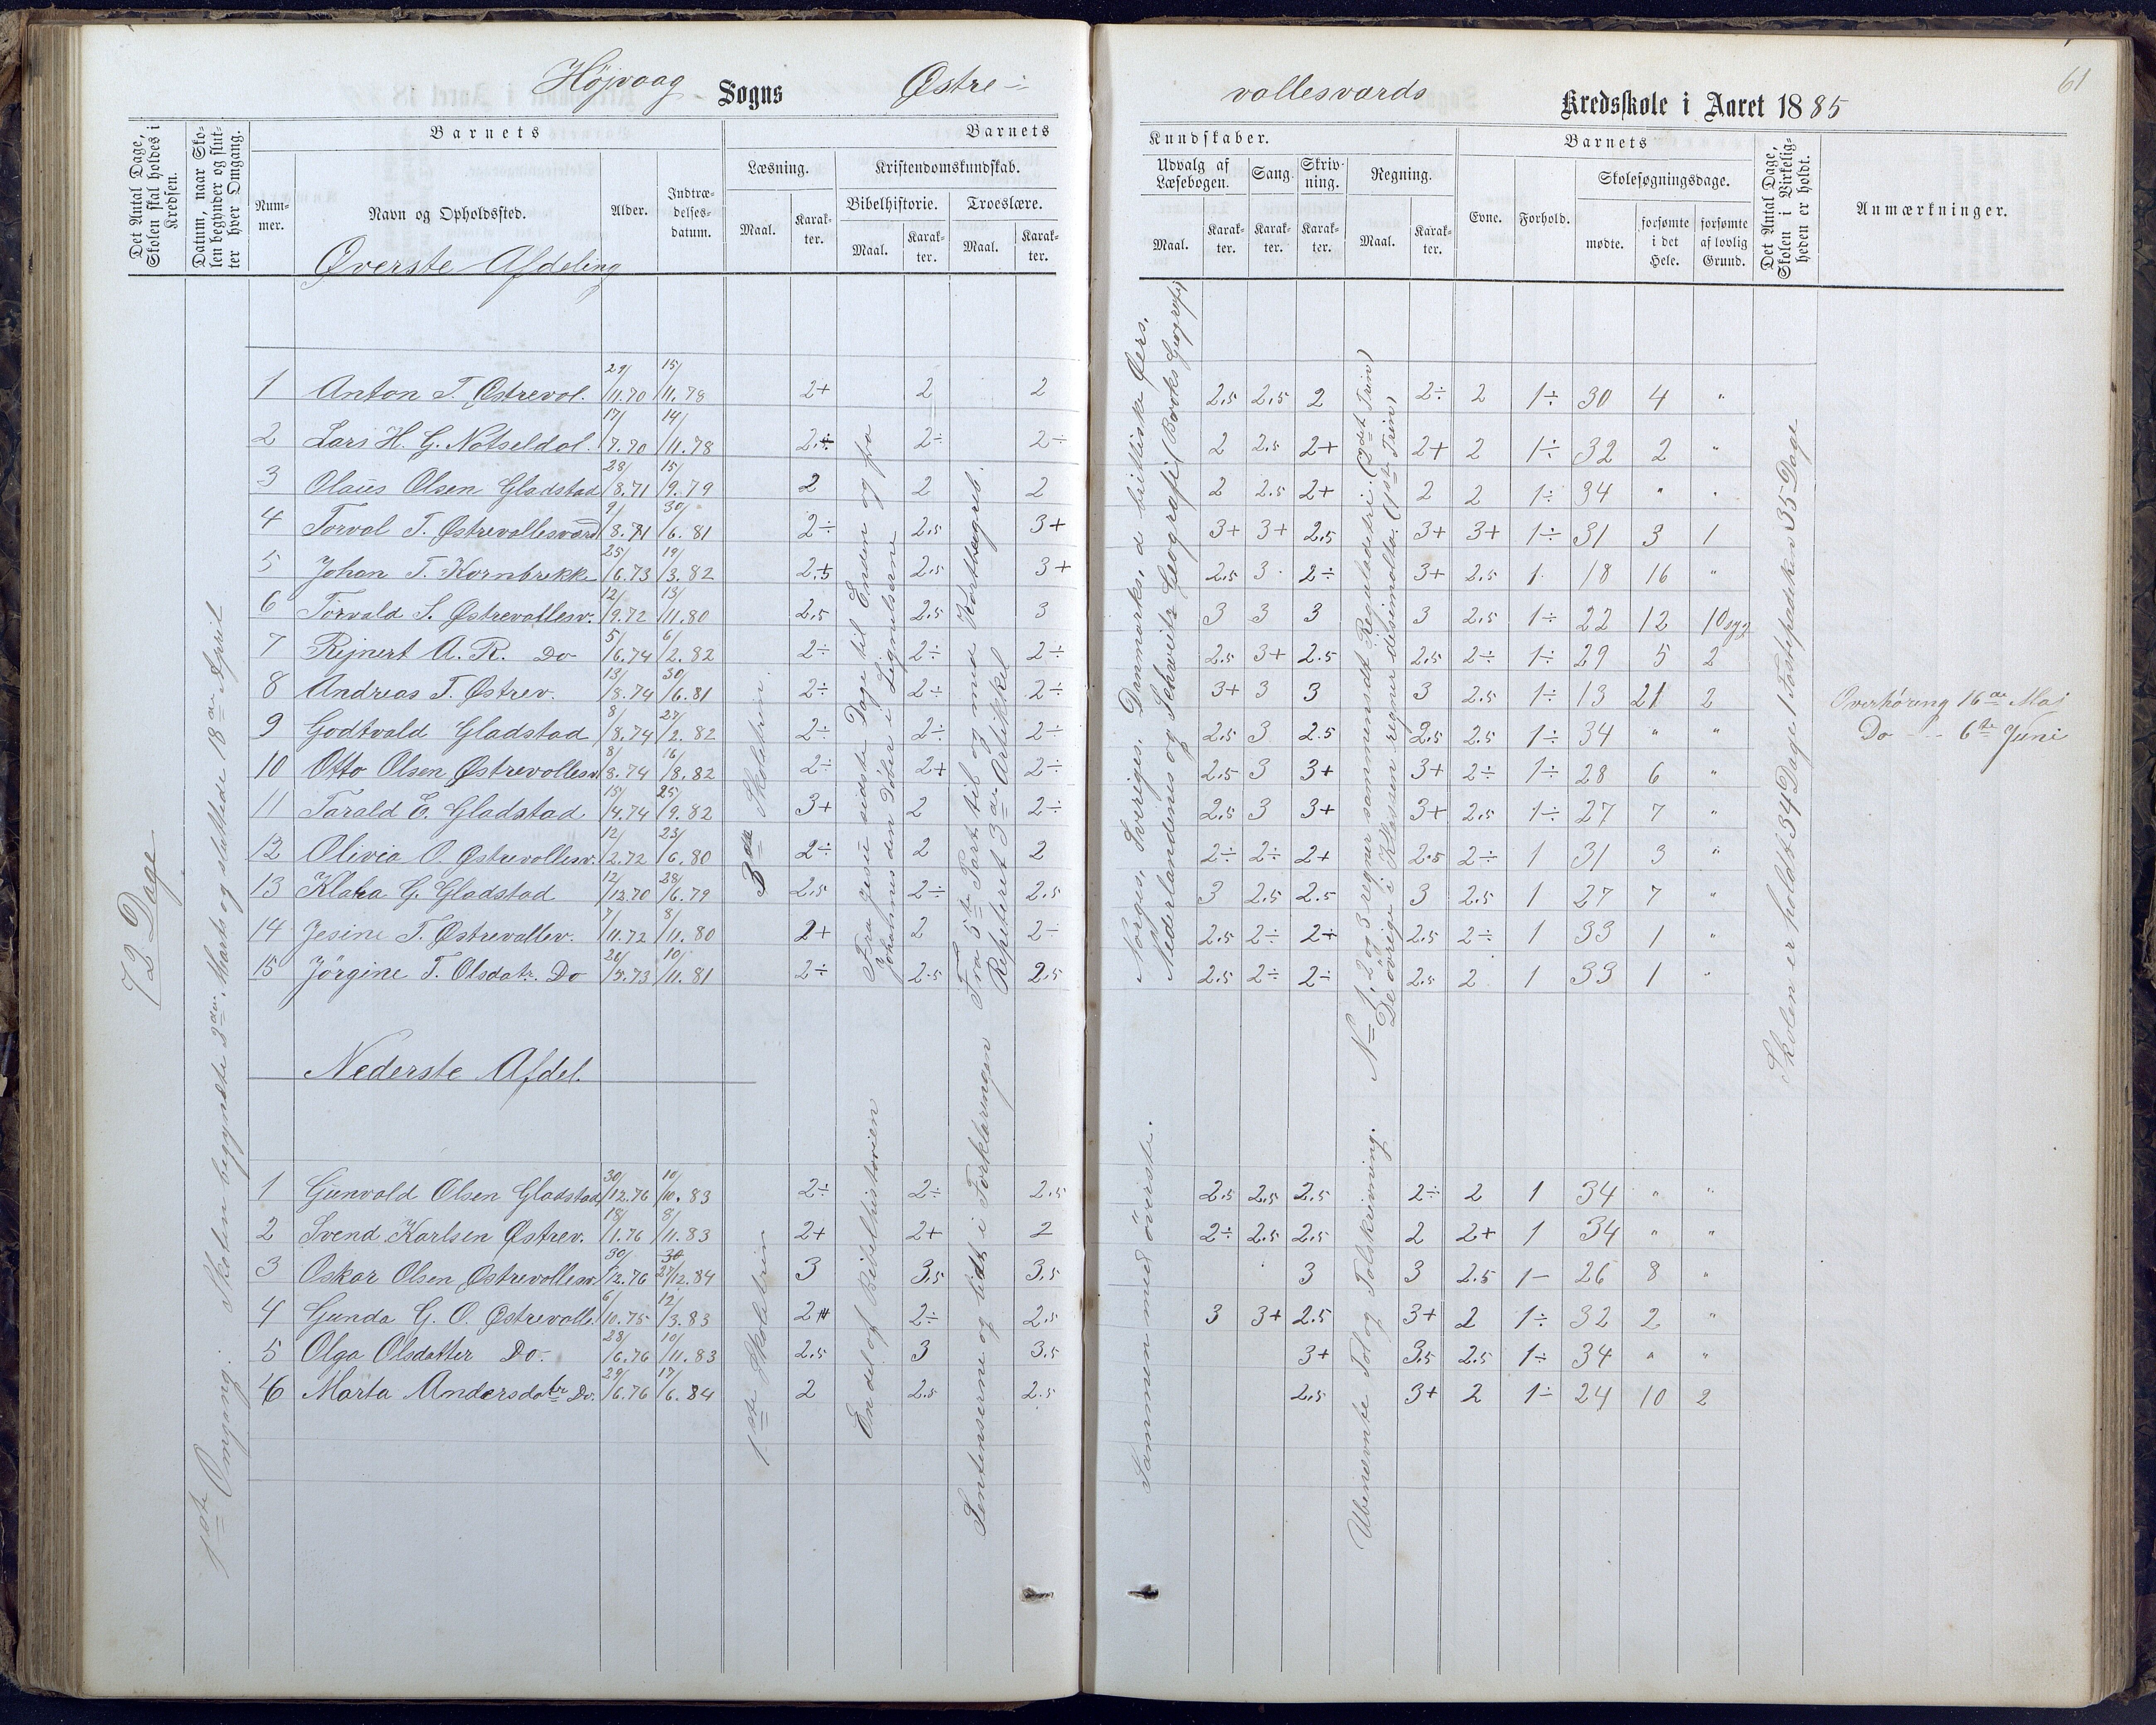 Højvaag Sogns Østre-
vallesværds Kredsskole i Aaret 1885
61
Det Antal Dage, Skolen skal holdes i Kredsen.
Datum, naar Skolen begynder og slutter hver Omgang.
Barnets
Nummer.
Navn og Opholdssted.
Alder.
Indtrædelsesdatum.
Barnets
Læsning.
Maal.
Karakter.
Kristendomskundskab.
Bibelhistorie.
Maal.
Karakter.
Troeslære.
Maal.
Karakter.
Kundskaber.
Udvalg af Læsebogen.
Maal.
Karakter.
Sang.
Karakter.
Skrivning.
Karakter.
Regning.
Maal.
Karakter.
Barnets
Evne.
Forhold.
Skolesøgningsdage.
mødte.
forsømte i det Hele.
forsømte af lovlig Grund.
Det Antal Dage, Skolen i Virkeligheden er holdt.
Anmærkninger.
Øverste Afdeling
1 Anton T. Østrevol. 29/11.70 15/11.78 2+ 2 2 2.5 2.5 2 2÷ 2 1÷ 30 4 "
2 Lars H. G. Natseldal. 17/7.70 14/11.78 2÷ 2÷ 2÷ 2 2.5 2+ 2+ 2 1÷ 32 2 "
3 Olaus Olsen Gladstad 28/8.71 15/9.79 2 2 2 2 2.5 2+ 2 2 1÷ 34 " "
4 Torval T. Østrevallesværd 9/8.71 30/6.81 2÷ 2.5 3+ 3+ 3+ 2.5 3+ 3+ 1÷ 31 3 1
5 Johan T. Kornbrekke 25/6.73 19/3.82 2.5 2.5 3+ 2.5 3 2÷ 3+ 2.5 1 18 16 "
6 Torvald S. Østrevallesv. 12/9.72 13/11.80 2.5 2.5 3 3 3 3 3 2.5 1÷ 22 12 10 syg
7 Rejnert A. R. Do 5/6.74 6/2.82 2÷ 2÷ 2÷ 2.5 3+ 2.5 2.5 2÷ 1÷ 29 5 2
8 Andreas T. Østrev. 13/8.74 30/6.81 2÷ 2÷ 2÷ 3+ 3 3 3 2.5 1÷ 13 21 2
9 Godtvald Gladstad 8/8.74 27/2.82 2÷ 2÷ 2÷ 2.5 3 2.5 2.5 2.5 1÷ 34 " "
10 Otto Olsen Østrevallesv. 8/8.74 16/8.82 2÷ 2+ 2÷ 2.5 3 3+ 3+ 2÷ 1÷ 28 6 "
11 Tarald E. Gladstad 15/4.74 25/9.82 3+ 2 2÷ 2.5 3 3+ 3+ 2.5 1÷ 27 7 "
12 Olivia O. Østrevallesv. 12/2.72 23/6.80 2÷ 2 2 2÷ 2÷ 2+ 2.5 2÷ 1 31 3 "
13 Klara G. Gladstad 12/12.70 28/6.79 2.5 2÷ 2.5 3 2.5 2.5 3 2.5 1 27 7 "
14 Jesine T. Østrevallev. 7/11.72 8/11.80 2+ 2 2÷ 2.5 2÷ 2+ 2.5 2÷ 1 33 1 "
15 Jörgine T. Olsdatr. Do 26/5.73 10/11.81 2÷ 2.5 2.5 2.5 2÷ 2÷ 2.5 2 1 33 1 "
Nederste Afdel.
1 Gunvald Olsen Gladstad 30/12.76 10/10.83 2÷ 2÷ 2.5 2.5 2.5 2.5 2÷ 2 1 34 " "
2 Svend Karlsen Østrev. 18/1.76 8/11.83 2+ 2+ 2 2÷ 2.5 2.5 2 2+ 1 34 " "
3 Oskar Olsen Østrevallesv. 30/12.76 27/12.84 3 3.5 3.5 3 3 2.5 1- 26 8 "
4 Gunda G. O. Østrevalle. 6/10.75 12/3.83 2+ 2÷ 2.5 3 3+ 2.5 3+ 2 1÷ 32 2 "
5 Olga Olsdatter Do. 28/6.76 10/11.83 2.5 3 3.5 3+ 3.5 2.5 1÷ 34 " "
6 Marta Andersdatr Do. 29/6.76 17/6.84 2 2.5 2.5 2.5 3+ 2 1÷ 24 10 2
72 Dage
1ste Omgang: Skolen begyndte 3die Marts og sluttede 18de April
3die Skoletrin.
1ste Skoletrin
Fra Jesu sidste Dage til Enden og fra
Johannes den Døber i Lignelserne
En del af Bibelhistorien
Fra 5te Part til og med Kortbegreb.
Repeteret 3die Artikkel
Sentenserne og lidt i Forklaringen
Norges, Sveriges, Danmarks, d brittiske Øers,
Nederlandenes og Schveitz Geografi (Books Geografi)
Sammen med överste.
No 1, 2 og 3 regner sammensat Reguladetri. (2det Trin)
De øvrige i Klassen regner desimaltal. (1ste Trin)
Ubenevnte Tal og Talskrivning.
Skolen er holdt 34 Dage 1 Fastepræken 35 Dage
Overhøring 16de Maj
Do - - - 6te Juni